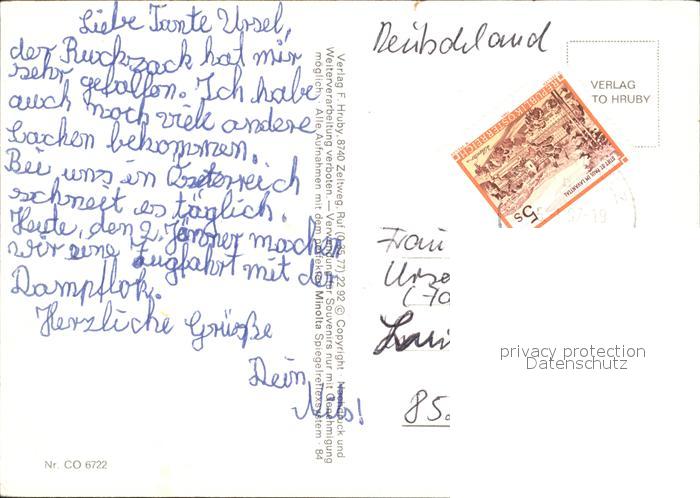 Liebe Tante Ursel,
der Ruckzack hat mir
sehr gefallen. Ich habe
auch noch viele andere
Sachen bekommen.
Bei uns in Österreich
schneit es täglich.
Heute, den 2. Jänner machen
wir eine Zugfahrt mit der
Dampflok.
Herzliche Grüße
Dein
Nr. CO 6722
Verlag F. Hruby, 8740 Zeltweg, Ruf (0 35 77) 22 92 © Copyright · Nachdruck und
Weiterverarbeitung verboten. — Verwendung für Souvenirs nur mit Genehmigung
möglich. Alle Aufnahmen mit dem perfekten Minolta Spiegelreflexsystem · 84
Deutschland
VERLAG
TO HRUBY
REPUBLIK ÖSTERREICH
STIFT ST. PAUL IM LAVANTTAL
5s
Frau
Urse
(70
85
privacy protection
Datenschutz